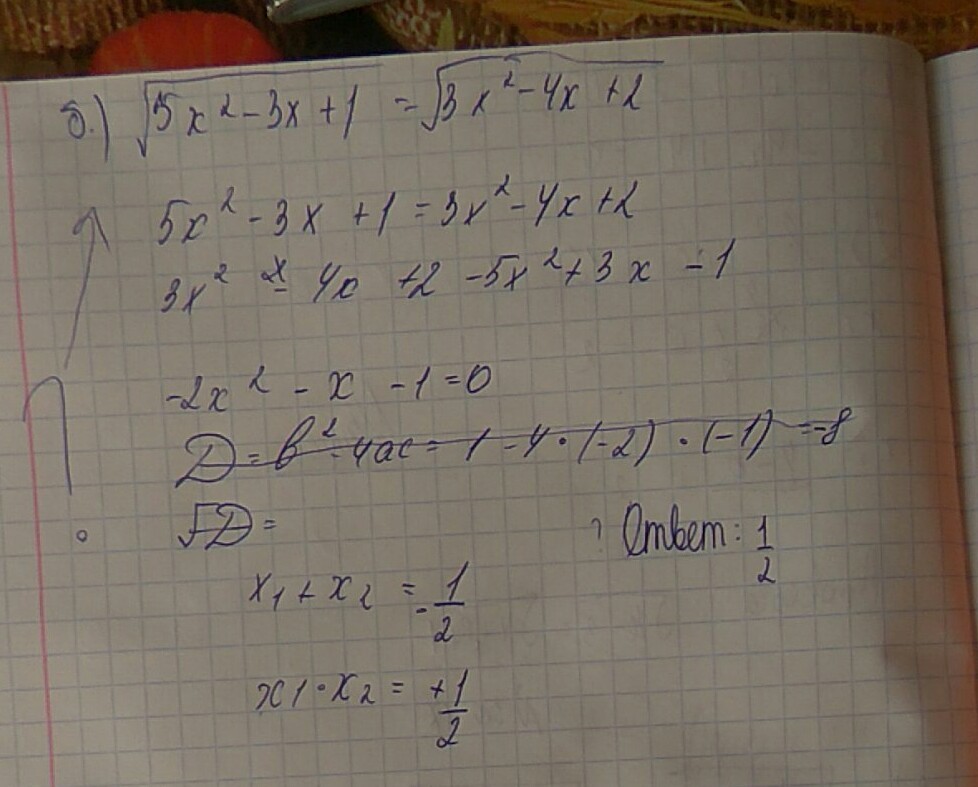 б.) √5x² - 3x + 1 = √3x² - 4x + 2
5x² - 3x + 1 = 3x² - 4x + 2
3x² - 4x + 2 - 5x² + 3x - 1
-2x² - x - 1 = 0
D = b² - 4ac = 1 - 4 · (-2) · (-1) = -8
√D =
? Ответ: 1/2
x1 + x2 = -1/2
x1 · x2 = +1/2